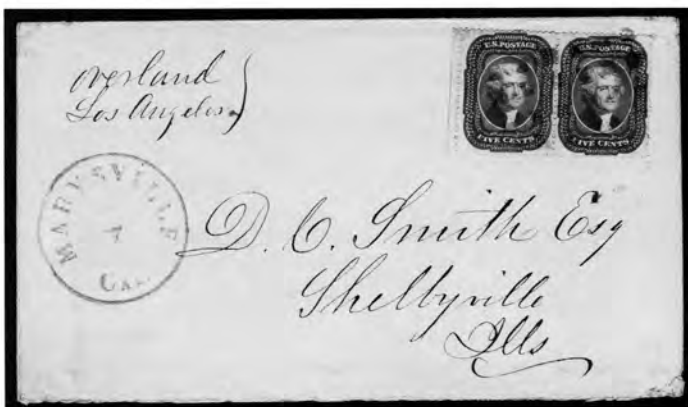 overland
Los Angeles
U.S. POSTAGE
FIVE CENTS
U.S. POSTAGE
FIVE CENTS
MARYSVILLE
7
CAL.
D. C. Smith Esq
Shelbyville
Ills